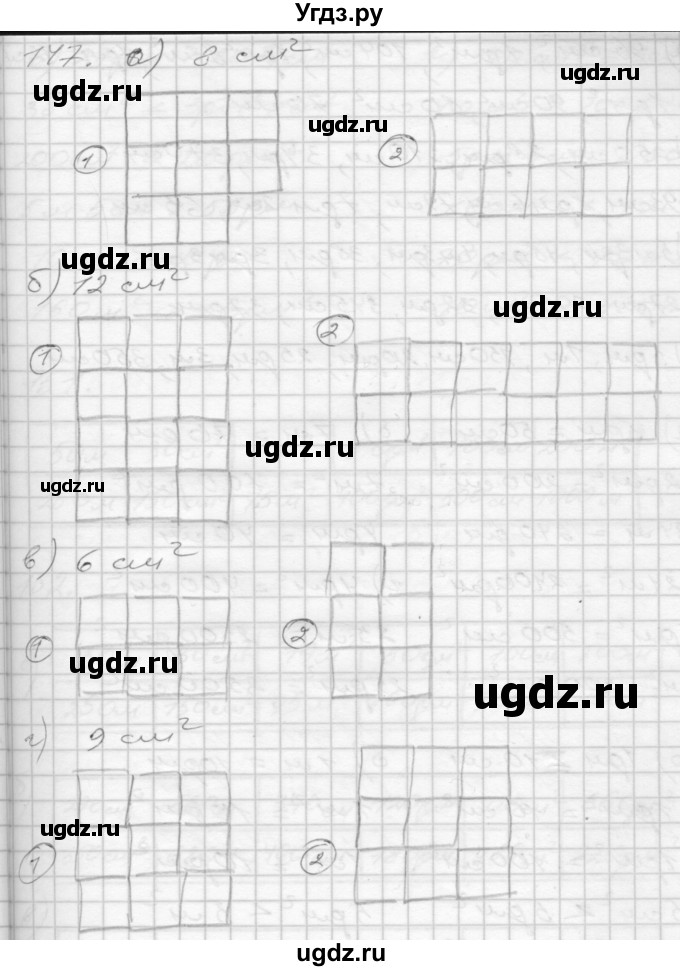 Угдз.ру
147. а) 8 см²
ugdz.ru
ugdz.ru
ugdz.ru
1
2
ugdz.ru
б) 12 см²
ugdz.ru
1
2
ugdz.ru
ugdz.ru
в) 6 см²
1
2
ugdz.ru
ugdz.ru
г) 9 см²
ugdz.ru
1
2
ugdz.ru